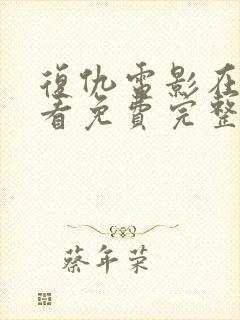 復仇雷影在
看免費完整
蔡年荣